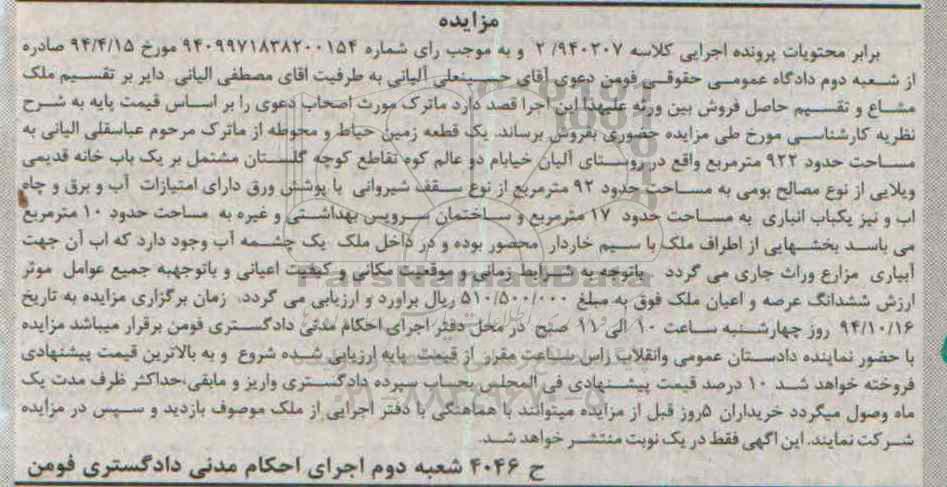 مزایده
برابر محتویات پرونده اجرایی کلاسه ۲/۹۴۰۲۰۷ و به موجب رای شماره ۹۴۰۹۹۷۱۸۳۸۲۰۰۱۵۴ مورخ ۹۴/۴/۱۵ صادره
از شعبه دوم دادگاه عمومی حقوقی فومن دعوی آقای حسینعلی آلیانی به طرفیت اقای مصطفی الیانی دایر بر تقسیم ملک
مشاع و تقسیم حاصل فروش بین ورثه علیهذا این اجرا قصد دارد ماترک مورث اصحاب دعوی را بر اساس قیمت پایه به شرح
نظریه کارشناسی مورخ طی مزایده حضوری بفروش برساند. یک قطعه زمین حیاط و محوطه از ماترک مرحوم عباسقلی الیانی به
مساحت حدود ۹۲۲ مترمربع واقع در روستای آلیان خیابام دو عالم کوه تقاطع کوچه گلستان مشتمل بر یک باب خانه قدیمی
ویلایی از نوع مصالح بومی به مساحت حدود ۹۲ مترمربع از نوع سقف شیروانی با پوشش ورق دارای امتیازات آب و برق و چاه
اب و نیز یکباب انباری به مساحت حدود ۱۷ مترمربع و ساختمان سرویس بهداشتی و غیره به مساحت حدود ۱۰ مترمربع
می باسد بخشهایی از اطراف ملک با سیم خاردار محصور بوده و در داخل ملک یک چشمه آب وجود دارد که اب آن جهت
آبیاری مزارع وراث جاری می گردد باتوجه به شرایط زمانی و موقعیت مکانی و کیفیت اعیانی و باتوجهبه جمیع عوامل موثر
ارزش ششدانگ عرصه و اعیان ملک فوق به مبلغ ۵۱۰/۵۰۰/۰۰۰ ریال براورد و ارزیابی می گردد. زمان برگزاری مزایده به تاریخ
۹۴/۱۰/۱۶ روز چهارشنبه ساعت ۱۰ الی ۱۱ صبح در محل دفتر اجرای احکام مدنی دادگستری فومن برقرار میباشد مزایده
با حضور نماینده دادستان عمومی وانقلاب راس ساعت مقرر از قیمت پایه ارزیابی شده شروع و به بالاترین قیمت پیشنهادی
فروخته خواهد شد ۱۰ درصد قیمت پیشنهادی فی المجلس بحساب سپرده دادگستری واریز و مابقی حداکثر ظرف مدت یک
ماه وصول میگردد خریداران ۵روز قبل از مزایده میتوانند با هماهنگی با دفتر اجرایی از ملک موصوف بازدید و سپس در مزایده
شرکت نمایند. این اگهی فقط در یک نوبت منتشر خواهد شد.
ح ۴۰۴۶ شعبه دوم اجرای احکام مدنی دادگستری فومن
ParsNamadData
۰۲۱-۸۸۳۴۹۶۷۰-۵